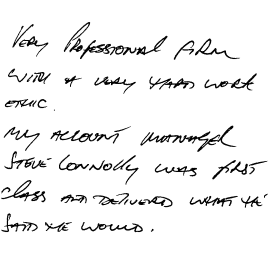 Very Professional firm
with a very hard work
ethic.
My account manager
Steve Connolly was first
class and delivered what he
said he would.